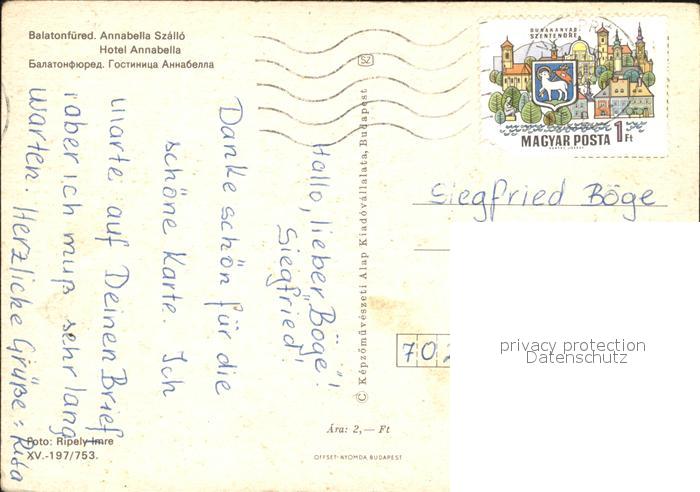 Balatonfüred. Annabella Szálló
Hotel Annabella
Балатонфюред. Гостиница Аннабелла
SZ
DUNAKANYAR
SZENTENDRE
MAGYAR POSTA 1 Ft
Siegfried Böge
702
privacy protection
Datenschutz
Hallo, lieber "Böge"!
Siegfried!
Danke schön für die
schöne Karte. Ich
warte auf Deinen Brief
aber ich muß sehr lang
warten. Herzliche Grüße: Rita
© Képzőművészeti Alap Kiadóvállalata, Budapest
Ára: 2,— Ft
OFFSET-NYOMDA, BUDAPEST
Foto: Ripely Imre
XV.-197/753.